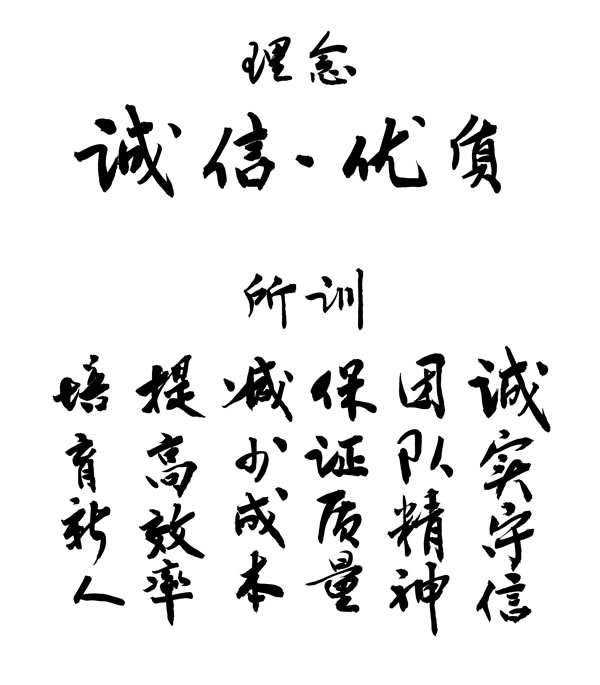 理念
诚信·优质
所训
诚实守信
团队精神
保证质量
减少成本
提高效率
培育新人